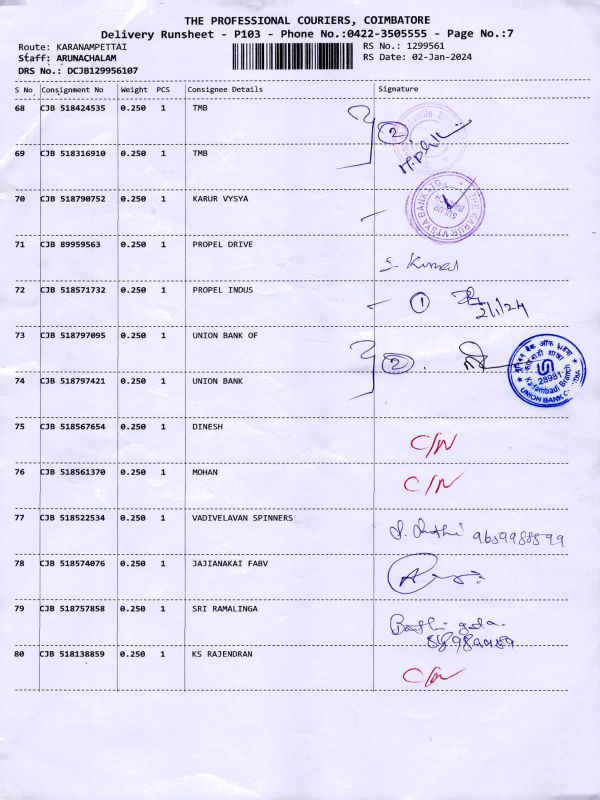 THE PROFESSIONAL COURIERS, COIMBATORE
Delivery Runsheet - P103 - Phone No.:0422-3505555 - Page No.:7
Route: KARANAMPETTAI RS No.: 1299561
Staff: ARUNACHALAM RS Date: 02-Jan-2024
DRS No.: DCJB129956107
S No Consignment No Weight PCS Consignee Details Signature
68 CJB 518424535 0.250 1 TMB
2
69 CJB 518316910 0.250 1 TMB
70 CJB 518790752 0.250 1 KARUR VYSYA
THE KARUR VYSYA BANK LTD
SULUR
71 CJB 89959563 0.250 1 PROPEL DRIVE
S. Kumar
72 CJB 518571732 0.250 1 PROPEL INDUS
1 2/1/24
73 CJB 518797095 0.250 1 UNION BANK OF
2
28981
UNION BANK
74 CJB 518797421 0.250 1 UNION BANK
75 CJB 518567654 0.250 1 DINESH
C/N
76 CJB 518561370 0.250 1 MOHAN
C/N
77 CJB 518522534 0.250 1 VADIVELAVAN SPINNERS
9659988599
78 CJB 518574076 0.250 1 JAJIANAKAI FABV
79 CJB 518757858 0.250 1 SRI RAMALINGA
80 CJB 518138859 0.250 1 KS RAJENDRAN
C/N